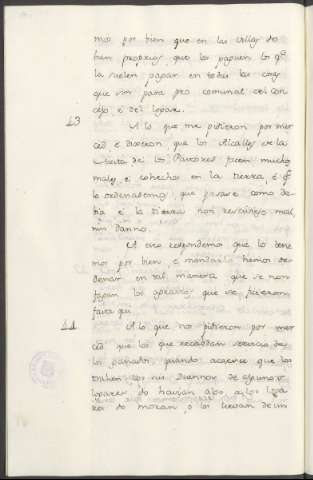 mos por bien que en las villas do
han proprios que los paguen los que
la suelen pagar en todas las cosas
que son para pro comunal del con
cejo è del logar.
43 A lo que me pidieron por mer
ced è dixeron que los Alcalles de la
Mesta de los Pastores facen muchos
males, è cohechos en la tierra, è que
lo ordenasemos, que pasase como de
bia è la tierra non rescibiese mal,
nin danno.
A esto respondemos que lo tene
mos por bien, è mandarlo hemos or
denar en tal manera que se non
fagan los agravios que se ficieron
fasta qui.
44 A lo que nos pidieron por mer
ced que los que recabdan servicio de
los ganados quando acaesce que los
trahen sus duennos de algunos
logares do havian a los logá
res do moran, o los lievan de un